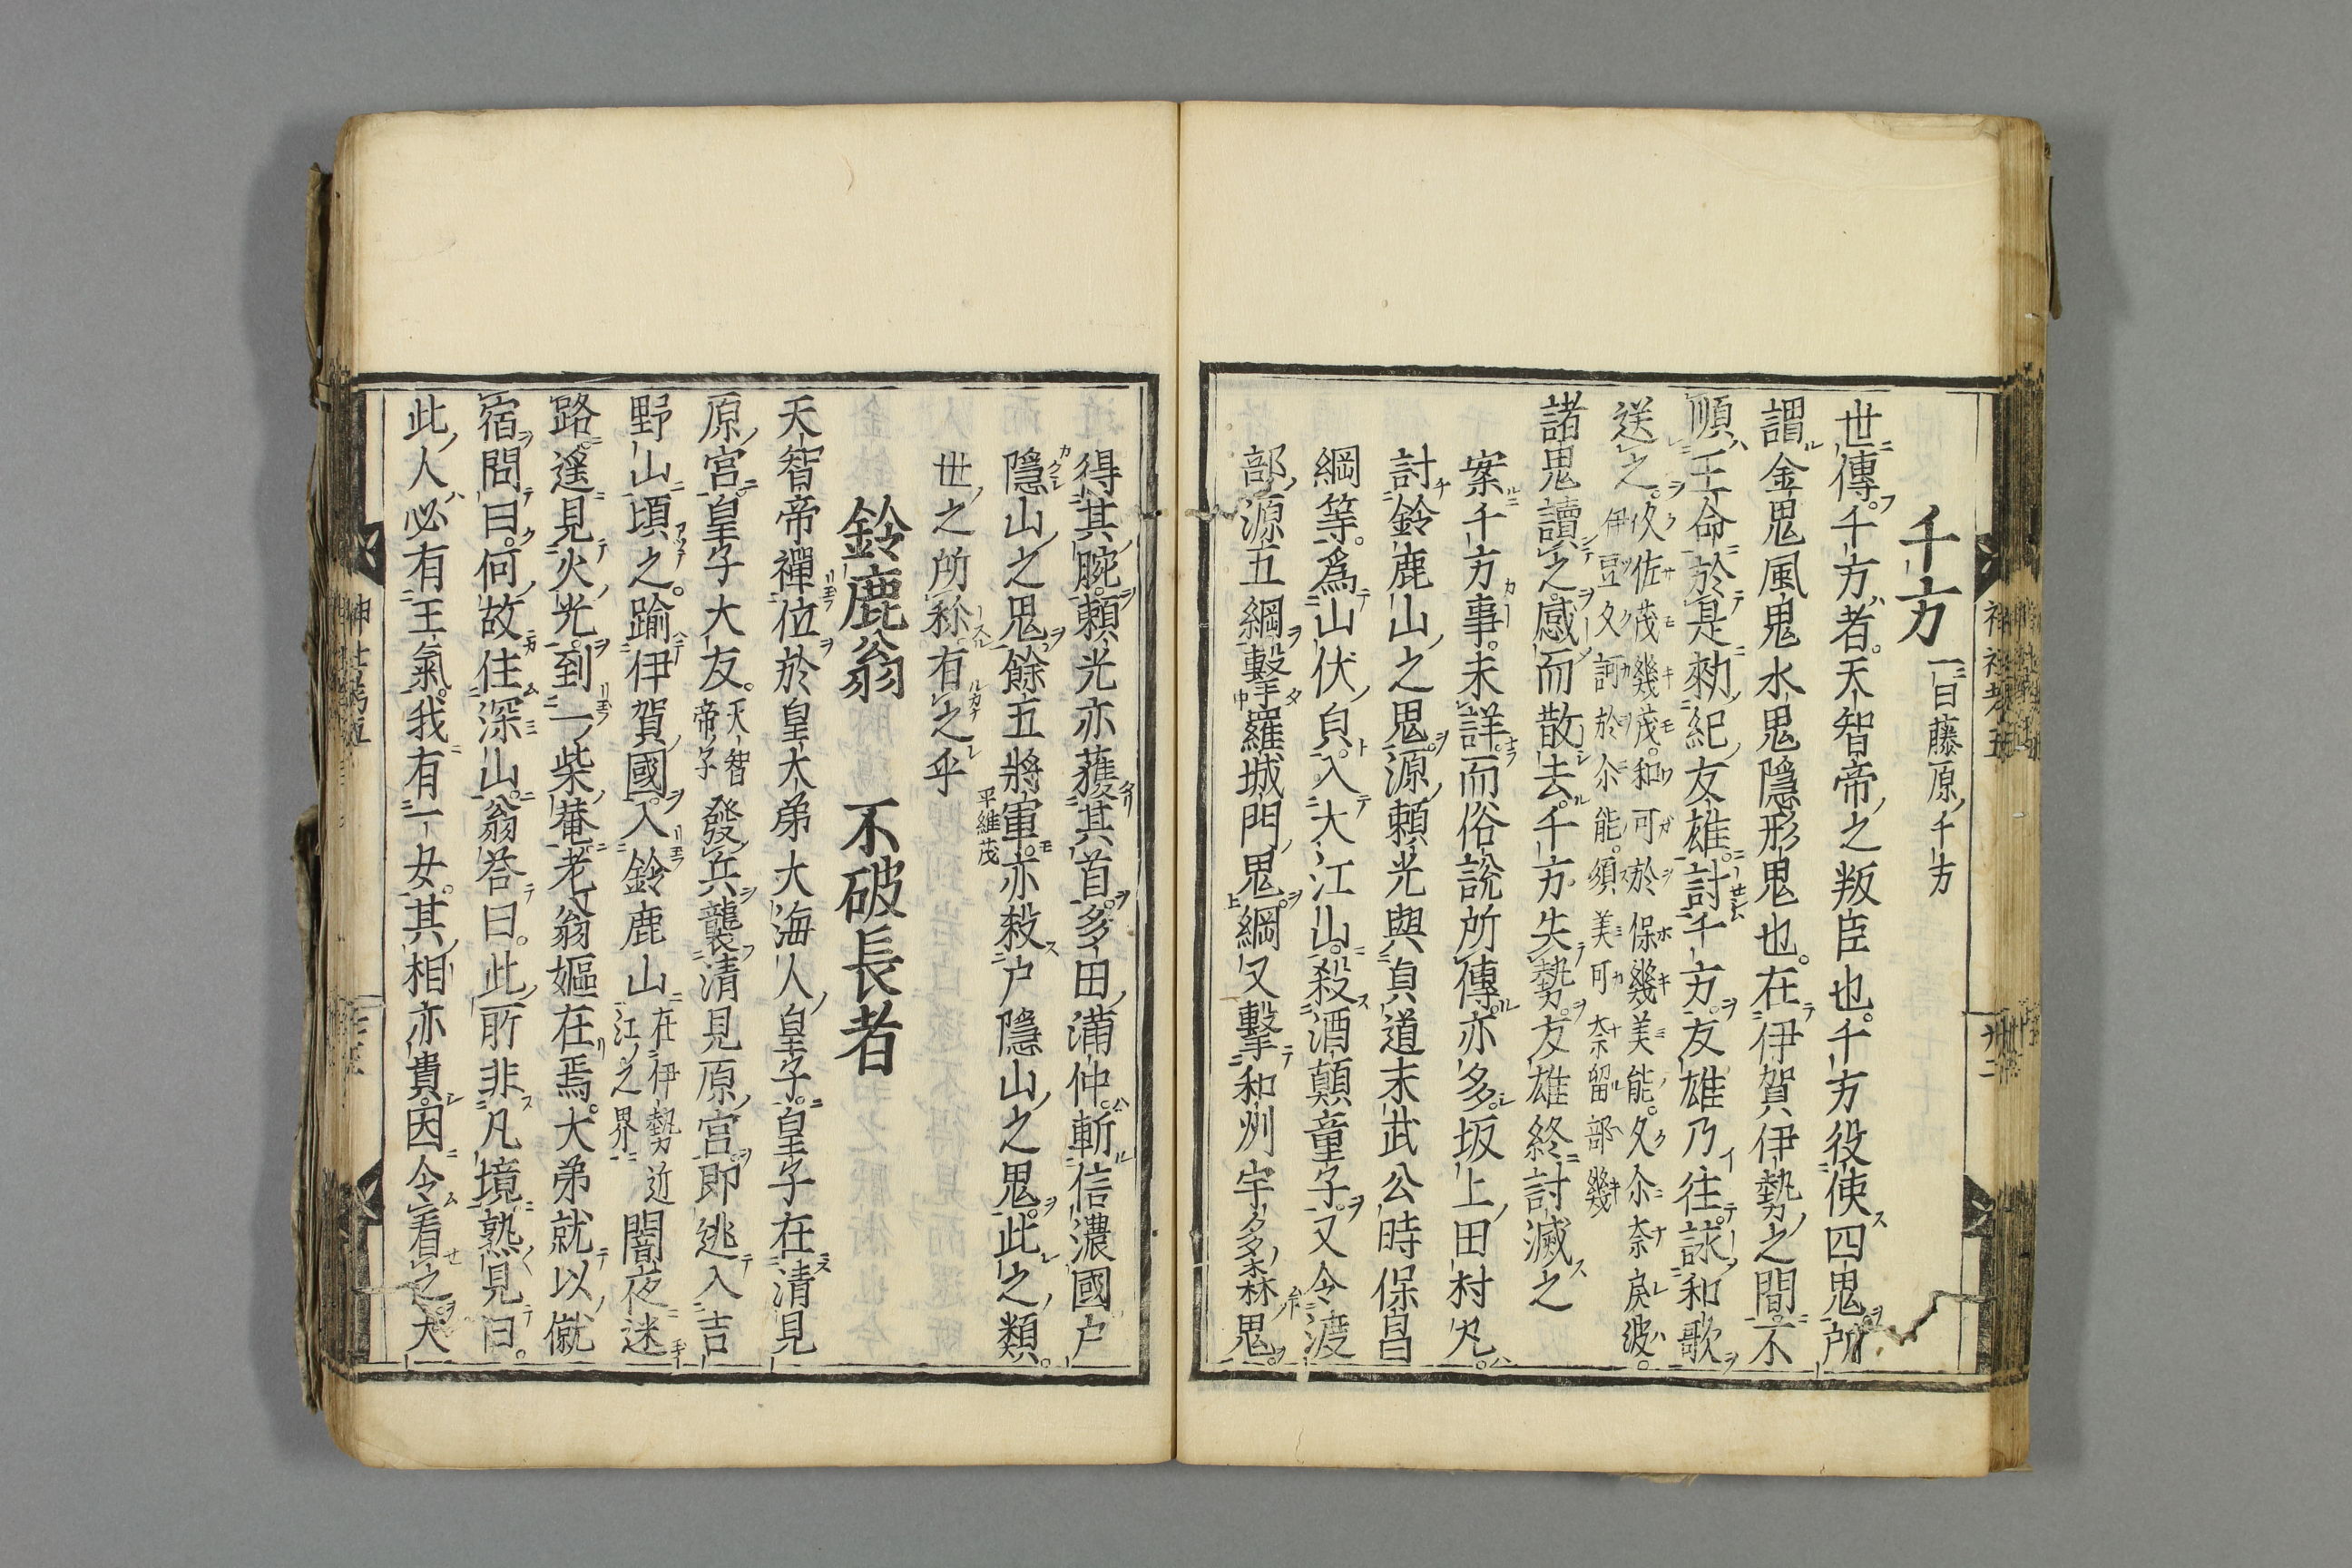 千方 一曰藤原千方
世傳。千方者。天智帝之叛臣也。千方役使四鬼。所
謂金鬼風鬼水鬼隱形鬼也。在伊賀伊勢之間。不
順王命。於是勑紀友雄。討千方。友雄乃往。詠和歌
送之。久佐茂幾茂。和可於保幾美能。久尒奈戾波。
伊豆久訶於尒能。須美可奈留部幾
諸鬼讀之。感而散去。千方失勢。友雄終討滅之
案千方事。未詳。而俗說所傳。亦多。坂上田村丸。
討鈴鹿山之鬼。源賴光與貞道末武公時保昌
綱等。爲山伏貞。入大江山。殺酒顛童子。又令渡
部源五綱擊羅城門鬼。綱又擊和州宇多森鬼。
得其腕。賴光亦獲其首。多田滿仲。斬信濃國戶
隱山之鬼。餘五將軍。平維茂亦殺戶隱山之鬼。此之類。
世之所稱。有之乎
鈴鹿翁 不破長者
天智帝禪位於皇太弟大海人皇子。皇子在清見
原宮。皇子大友。天智帝子發兵襲清見原宮。即逃入吉
野山。頃之。踰伊賀國。入鈴鹿山。在伊勢近江之界闇夜迷
路。遙見火光。到一柴菴。老翁嫗在焉。大弟就以僦
宿。問曰。何故住深山。翁荅曰。此所非凡境。熟見曰。
此人必有王氣。我有一女。其相亦貴。因令看之。大
神社考五
卅二